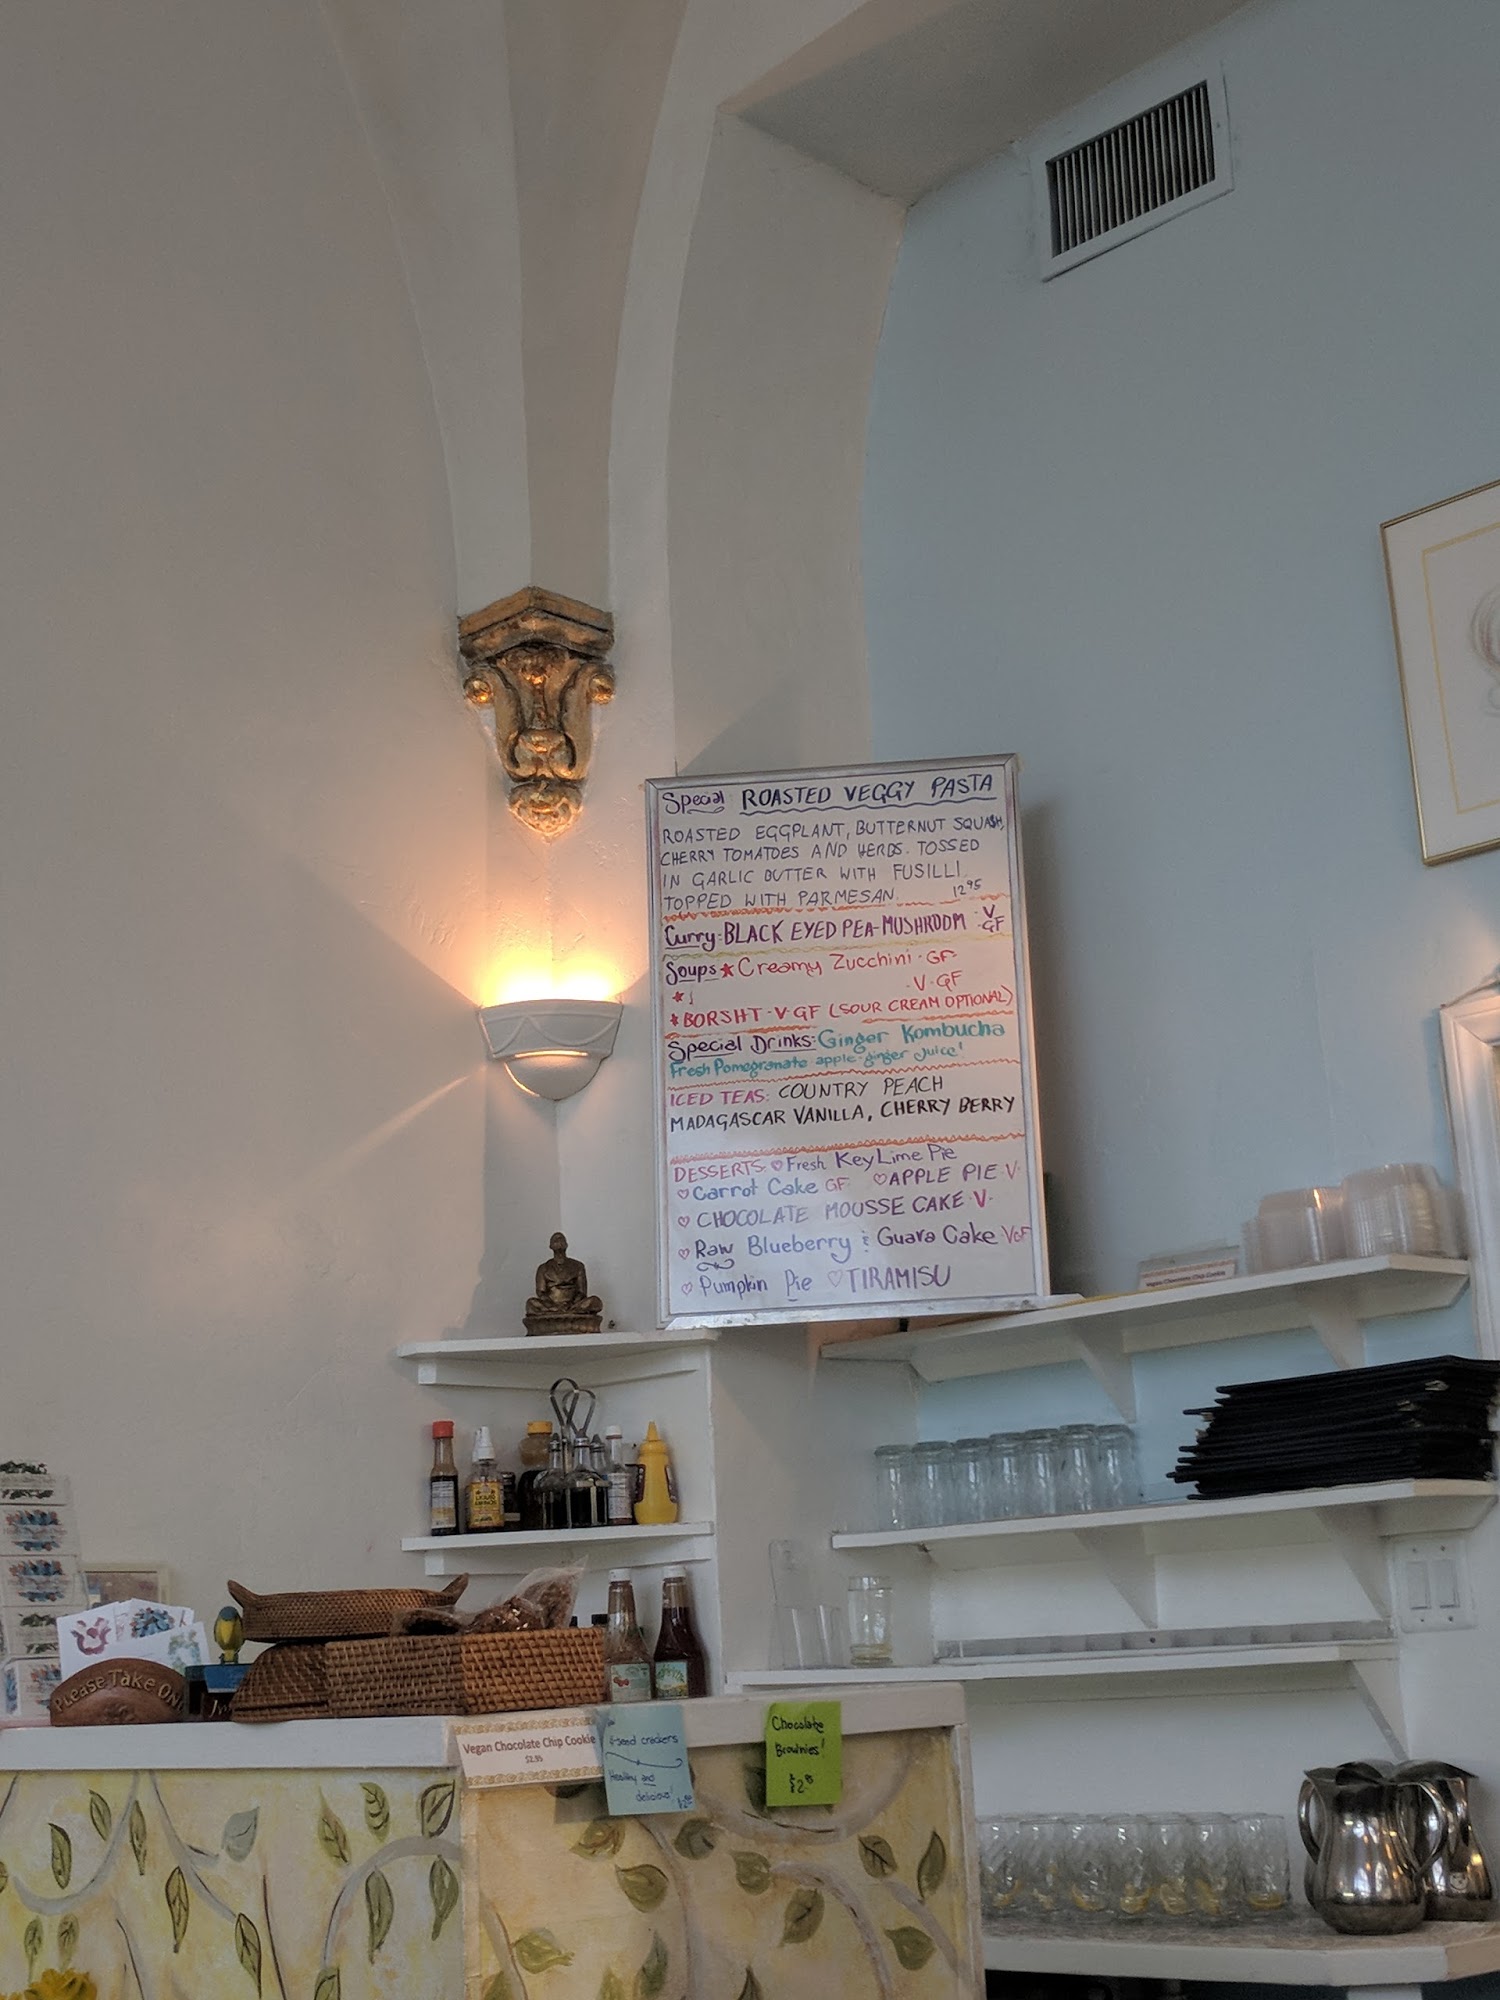 Special ROASTED VEGGY PASTA
ROASTED EGGPLANT, BUTTERNUT SQUASH,
CHERRY TOMATOES AND HERBS. TOSSED
IN GARLIC BUTTER WITH FUSILLI
TOPPED WITH PARMESAN. 12.95
Curry: BLACK EYED PEA-MUSHROOM · V GF
Soups ★ Creamy Zucchini · GF
· V · GF
★ BORSHT · V · GF (SOUR CREAM OPTIONAL)
Special Drinks: Ginger Kombucha
Fresh Pomegranate apple-ginger juice!
ICED TEAS: COUNTRY PEACH
MADAGASCAR VANILLA, CHERRY BERRY
DESSERTS: ♡ Fresh Key Lime Pie
♡ Carrot Cake GF ♡ APPLE PIE · V ·
♡ CHOCOLATE MOUSSE CAKE · V ·
♡ Raw Blueberry & Guava Cake V GF
♡ Pumpkin Pie ♡ TIRAMISU
Vegan Chocolate Chip Cookie
Please Take ONE
Vegan Chocolate Chip Cookie
$2.95
4-seed crackers
Healthy and
delicious!
Chocolate
Brownies!